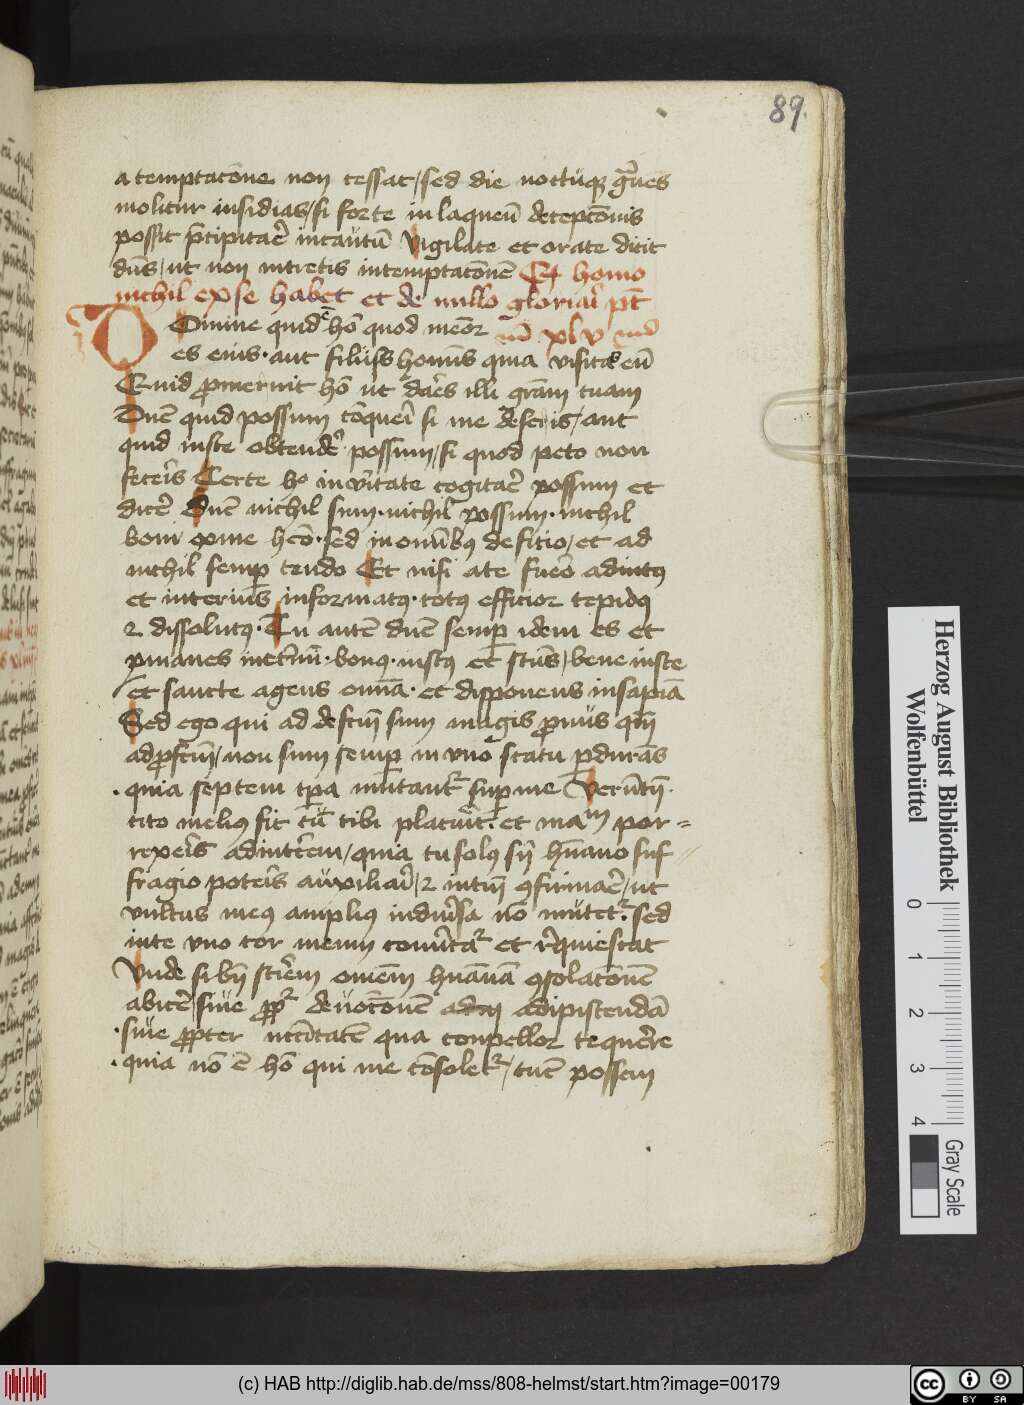 89.
a temptacōne non cessat / sed die noctuq3 gͣues
molitur insidias / si forte in laqueū decepcōnis
possit p̄cipitar̄ incautū vigilate et orate dicit
dn̄s / ut non intretis in temptacōnē Q homo
nichil ex se habet et de nullo gloriar̄ pt̄
Domine quid ē hō quod meōr
es eius · aut filius hominis quia visitas eū
Quid promeruit hō ut dar̄es illi grām tuam
Dn̄e quid possum cōqueri si me deseris / aut
quid iuste obtender̄ possum / si quod peto non
feceris Certe hoc in v̄itate cogitar̄ possum et
dicer̄ Dn̄e nichil sum · nichil possum · nichil
boni ex me hēo · sed in om̄ibus deficio / et ad
nichil semp tendo Et nisi a te fuero adiutus
et interius informatus · totus efficior tepidus
et dissolutus · Tu autē dn̄e semp idem es et
pmanes in et̄nū · bonus · iustus et sc̄us / bene iuste
et sancte agens omnia · et disponens in sapīa
Sed ego qui ad defc̄m sum magis pronus qm̄
ad profc̄m / non sum semp in vno statu pdurās
quia septem tpa mutantur sup me Verūtn̄
cito melius fit cū tibi placuit · et manū por=
rexeris adiutricem / quia tu solus sn̄ hūano suf=
fragio poteris auxiliari / et intm̄ 9firmar̄ / ut
vultus meus amplius in diūsa nō mutetur · sed
in te vno cor meum conūtatur et reqiescat
Vnde si bn̄ scirem omēm hūanā 9solacōnē
abicer̄ / siue propter deuocōnē adipiscendā
siue propter necc̄itatē qua conpellor te querere
quia nō ē hō qui me cōsoletur / tunc possem
Herzog August Bibliothek
Wolfenbüttel
0 1 2 3 4
Gray Scale
(c) HAB http://diglib.hab.de/mss/808-helmst/start.htm?image=00179
cc BY SA